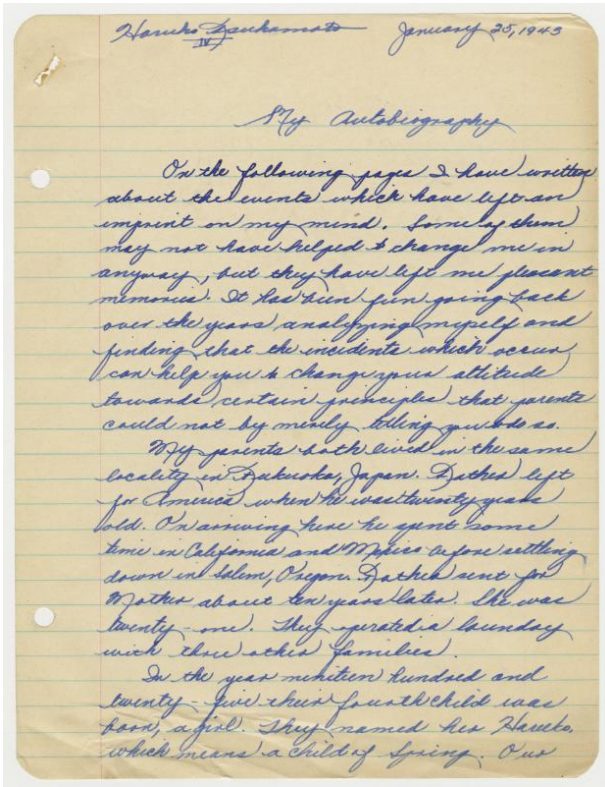 Haruko Tsukamoto January 25, 1943
IV
My Autobiography
On the following pages I have written
about the events which have left an
imprint on my mind. Some of them
may not have helped to change me in
anyway, but they have left me pleasant
memories. It has been fun going back
over the years analyzing myself and
finding that the incidents which occur
can help you to change your attitude
towards certain principles that parents
could not by merely telling you to do so.
My parents both lived in the same
locality in Fukuoka, Japan. Father left
for America when he was twenty years
old. On arriving here he spent some
time in California and Mexico before settling
down in Salem, Oregon. Father sent for
Mother about ten years later. She was
twenty-one. They operated a laundry
with three other families.
In the year nineteen hundred and
twenty-five their fourth child was
born, a girl. They named her Haruko,
which means a child of Spring. Our